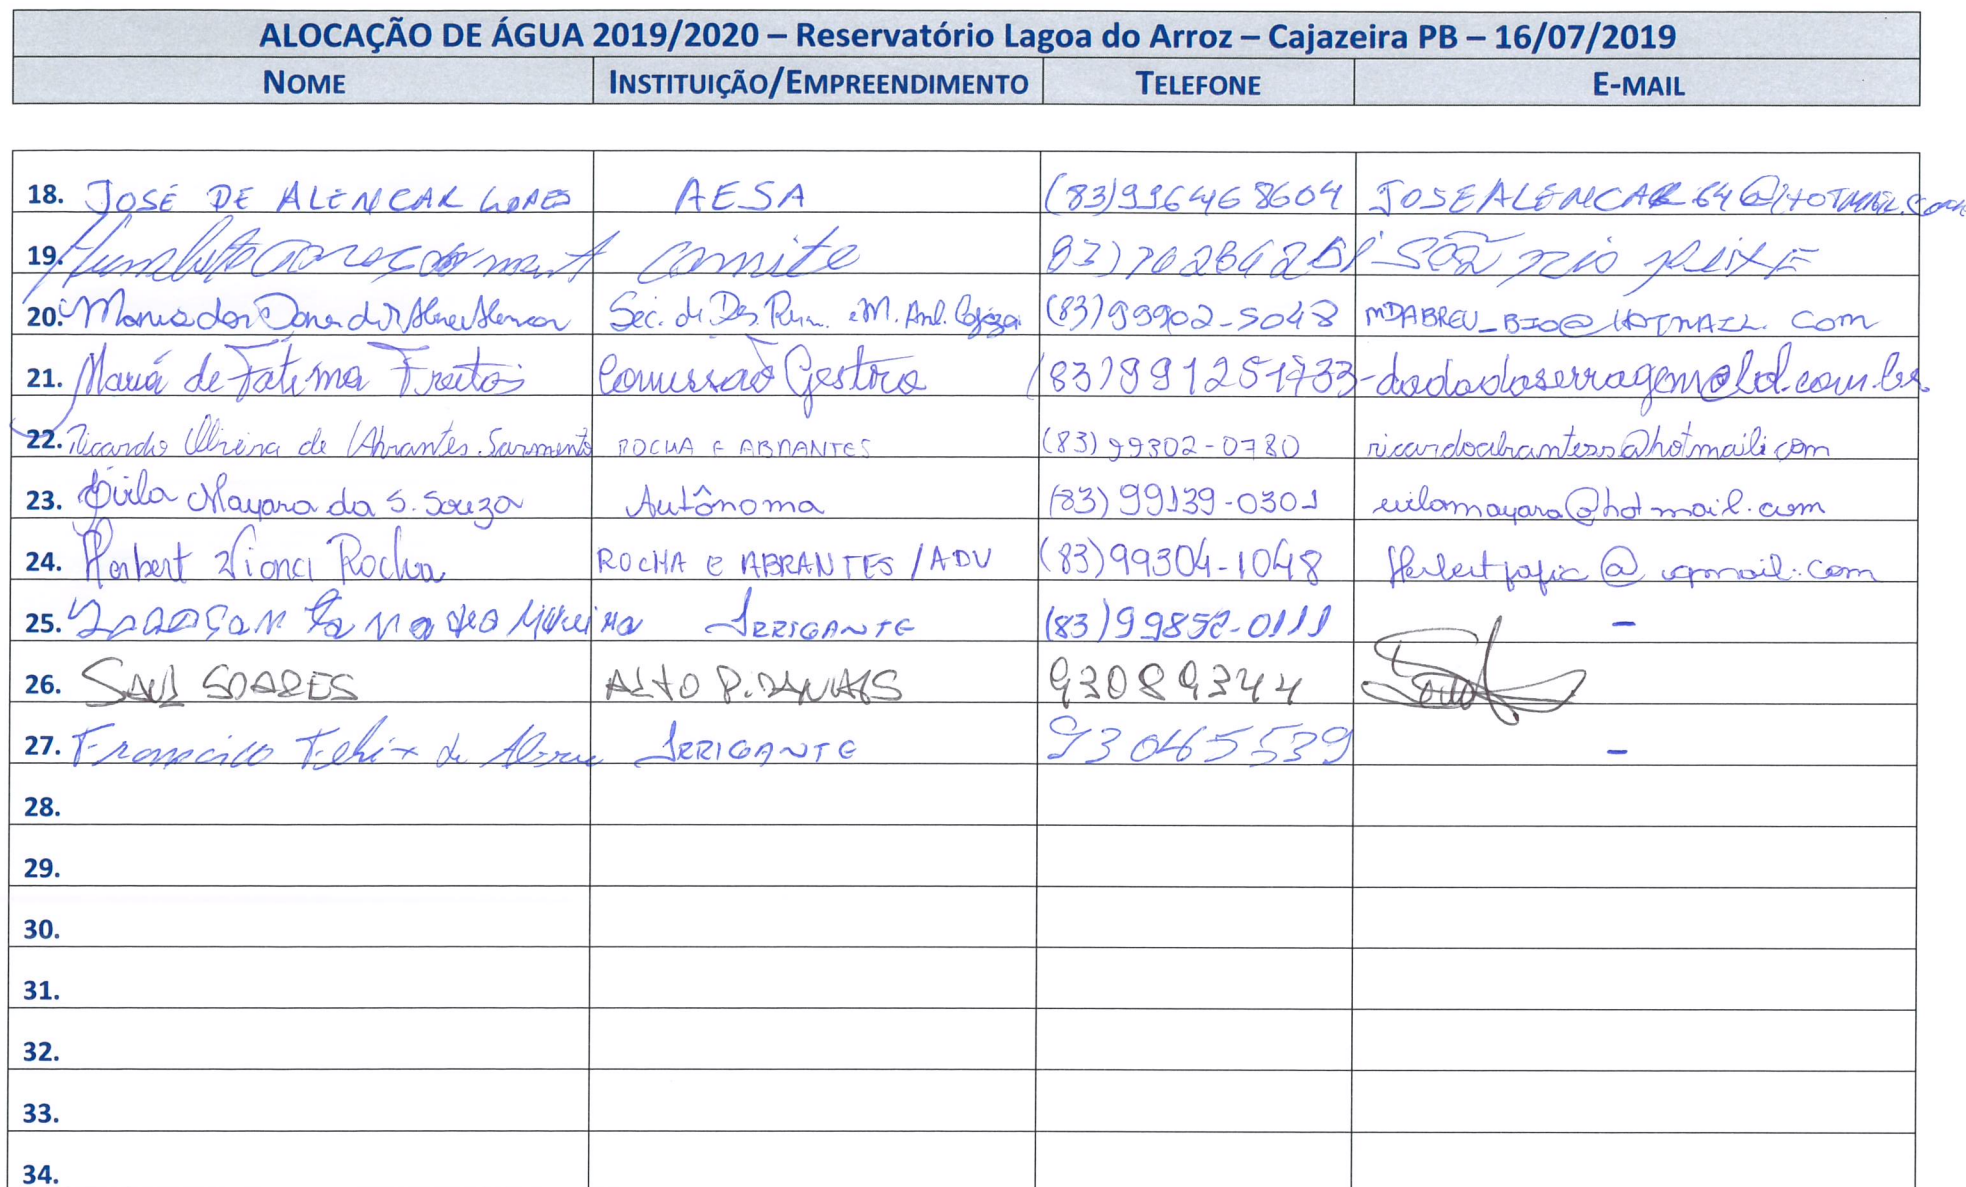 ALOCAÇÃO DE ÁGUA 2019/2020 – Reservatório Lagoa do Arroz – Cajazeira PB – 16/07/2019
NOME INSTITUIÇÃO/EMPREENDIMENTO TELEFONE E-MAIL
18. JOSÉ DE ALENCAR LOPES AESA (83)996468604 JOSEALENCAR64@HOTMAIL.COM
19. comite SÃO RIO PEIXE
20. Maria das Alencar Sec. de Des. Rur. e M. Amb. (83)99902-5048 MDABREU_BIO@HOTMAIL.COM
21. Maria de Fatima Freitas Comissão Gestora (83)991251733 -
22. Ricardo Oliveira de Abrantes Sarmento ROCHA E ABRANTES (83)99302-0780
23. Mayara da S. Souza Autônoma (83)99139-0301 evilamayara@hotmail.com
24. Herbert Viana Rocha ROCHA E ABRANTES /ADV (83)99304-1048
25. IRRIGANTE (83)99852-0111 -
26. SAUL SOARES ALTO 93089344
27. Francisco Felix de Abreu IRRIGANTE 930465539 -
28.
29.
30.
31.
32.
33.
34.